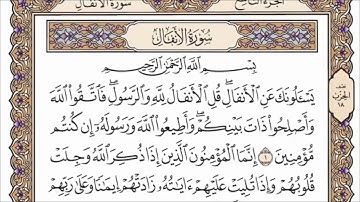 سورة الأنفال الجزء التاسع
سُورَةُ الأَنفَالِ
بِسْمِ اللَّهِ الرَّحْمَٰنِ الرَّحِيمِ
يَسْـَٔلُونَكَ عَنِ الْأَنفَالِ ۖ قُلِ الْأَنفَالُ لِلَّهِ وَالرَّسُولِ ۖ فَاتَّقُوا اللَّهَ
وَأَصْلِحُوا ذَاتَ بَيْنِكُمْ ۖ وَأَطِيعُوا اللَّهَ وَرَسُولَهُ إِن كُنتُم
مُّؤْمِنِينَ ١ إِنَّمَا الْمُؤْمِنُونَ الَّذِينَ إِذَا ذُكِرَ اللَّهُ وَجِلَتْ
قُلُوبُهُمْ وَإِذَا تُلِيَتْ عَلَيْهِمْ ءَايَٰتُهُ زَادَتْهُمْ إِيمَٰنًا وَعَلَىٰ رَبِّهِمْ
نصف
الحزب
١٨